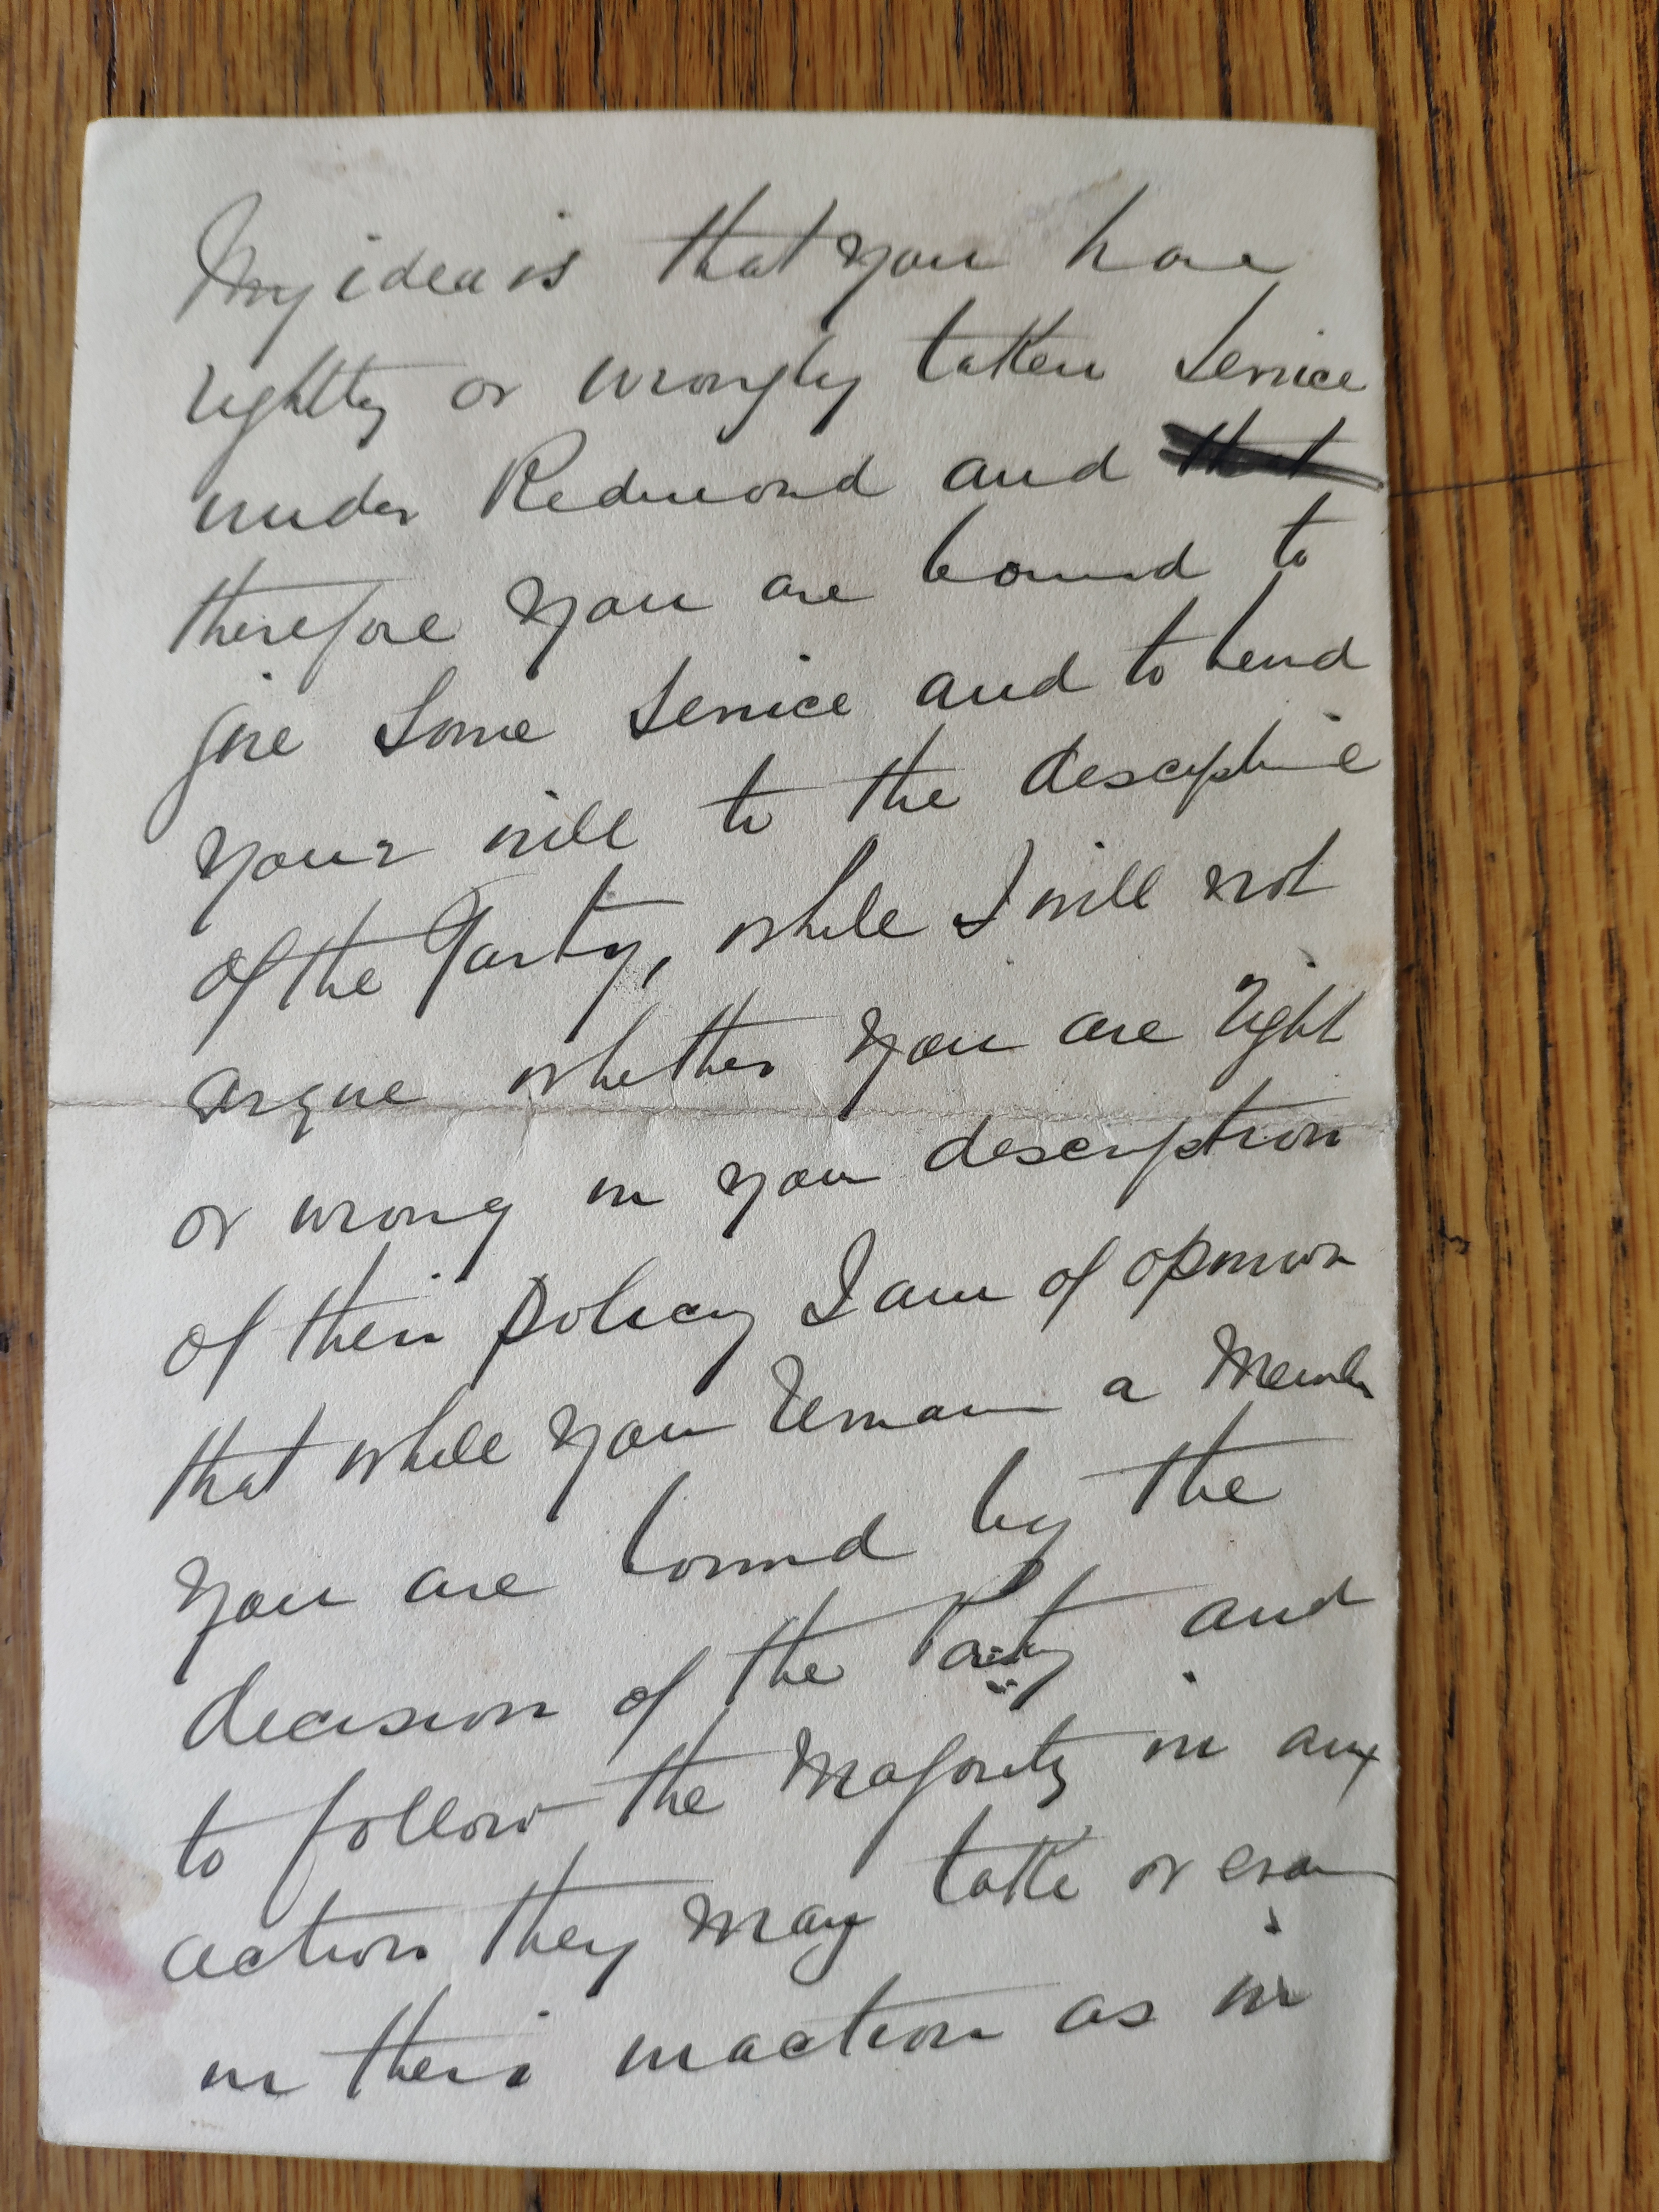 My idea is that you have
rightly or wrongly taken service
under Redmond and that
therefore you are bound to
give some service and to bend
your will to the descipline
of the Party, while I will not
argue whether you are right
or wrong in you description
of their policy I am of opinion
that while you remain a Member
you are bound by the
decision of the Party and
to follow the Majority in any
action they may take or even
in their inaction as in